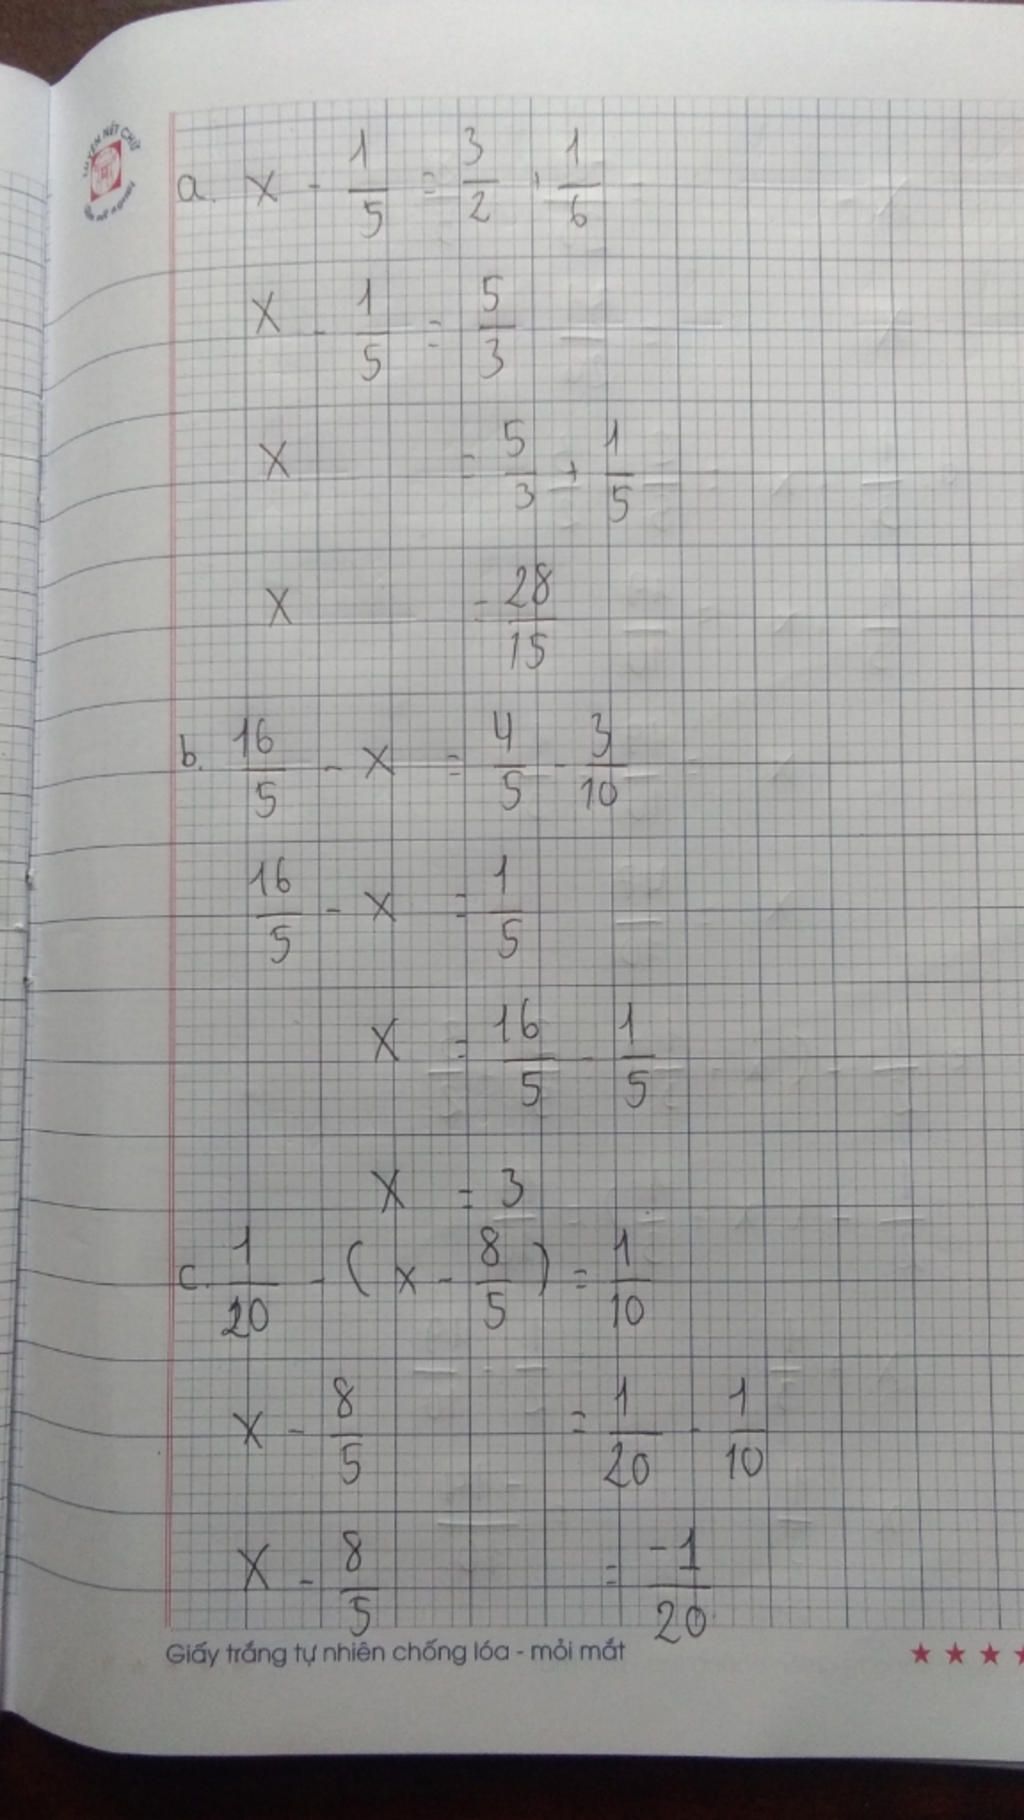 a. x - 1/5 = 3/2 + 1/6
x - 1/5 = 5/3
x = 5/3 + 1/5
x = 28/15
b. 16/5 - x = 4/5 - 3/10
16/5 - x = 1/5
x = 16/5 - 1/5
x = 3
c. 1/20 - ( x - 8/5 ) = 1/10
x - 8/5 = 1/20 - 1/10
x - 8/5 = -1/20
Giấy trắng tự nhiên chống lóa - mỏi mắt